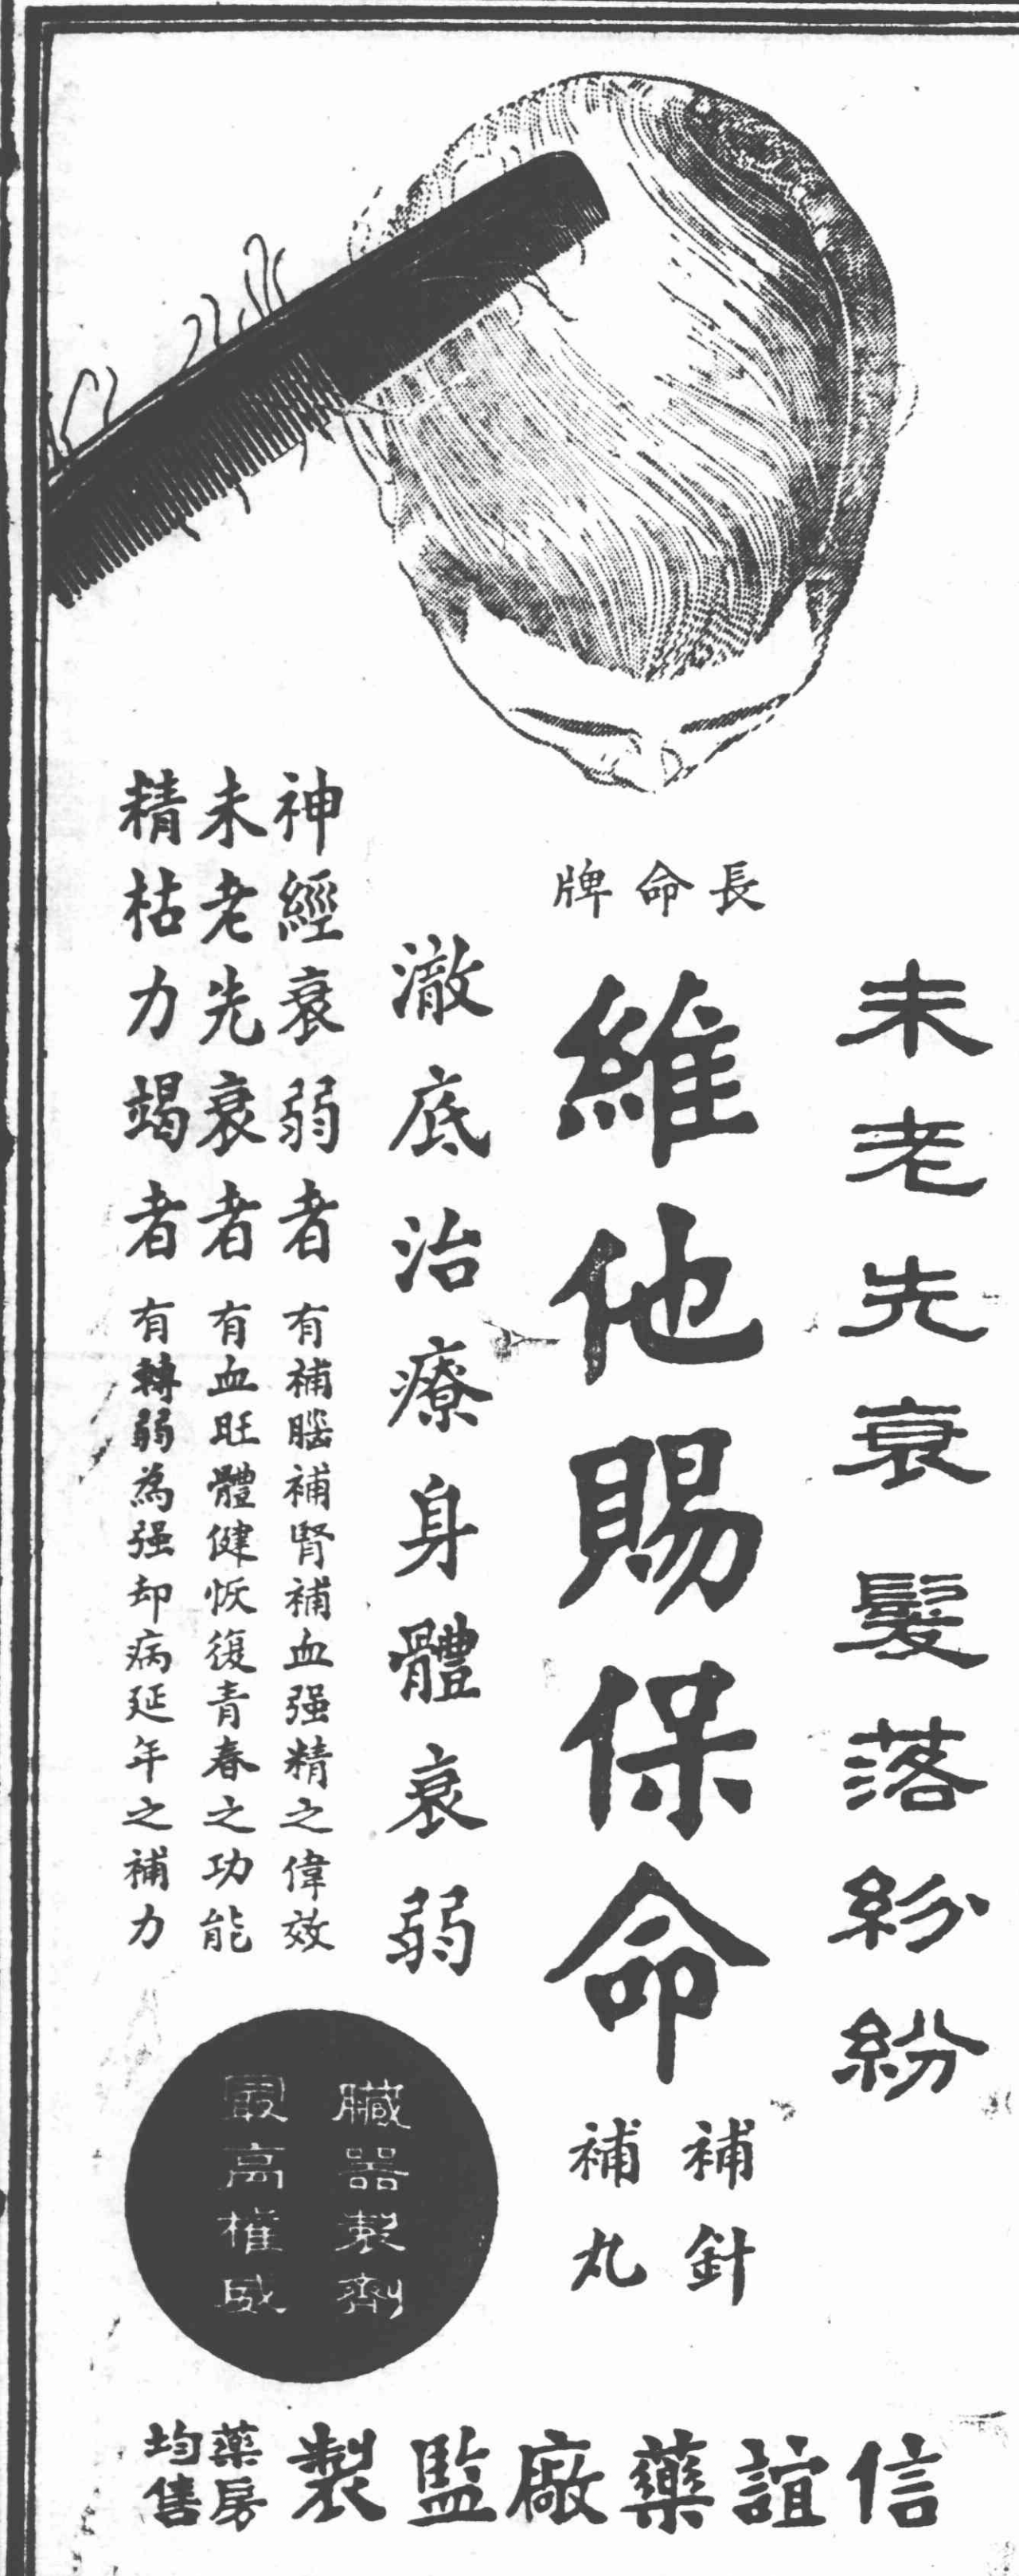 未老先衰髮落紛紛
長命牌
維他賜保命
補針
補丸
澈底治療身體衰弱
神經衰弱者 有補腦補腎補血强精之偉效
未老先衰者 有血旺體健恢復青春之功能
精枯力竭者 有轉弱為强却病延年之補力
臟器製劑
最高權威
信誼藥廠監製
藥房
均售